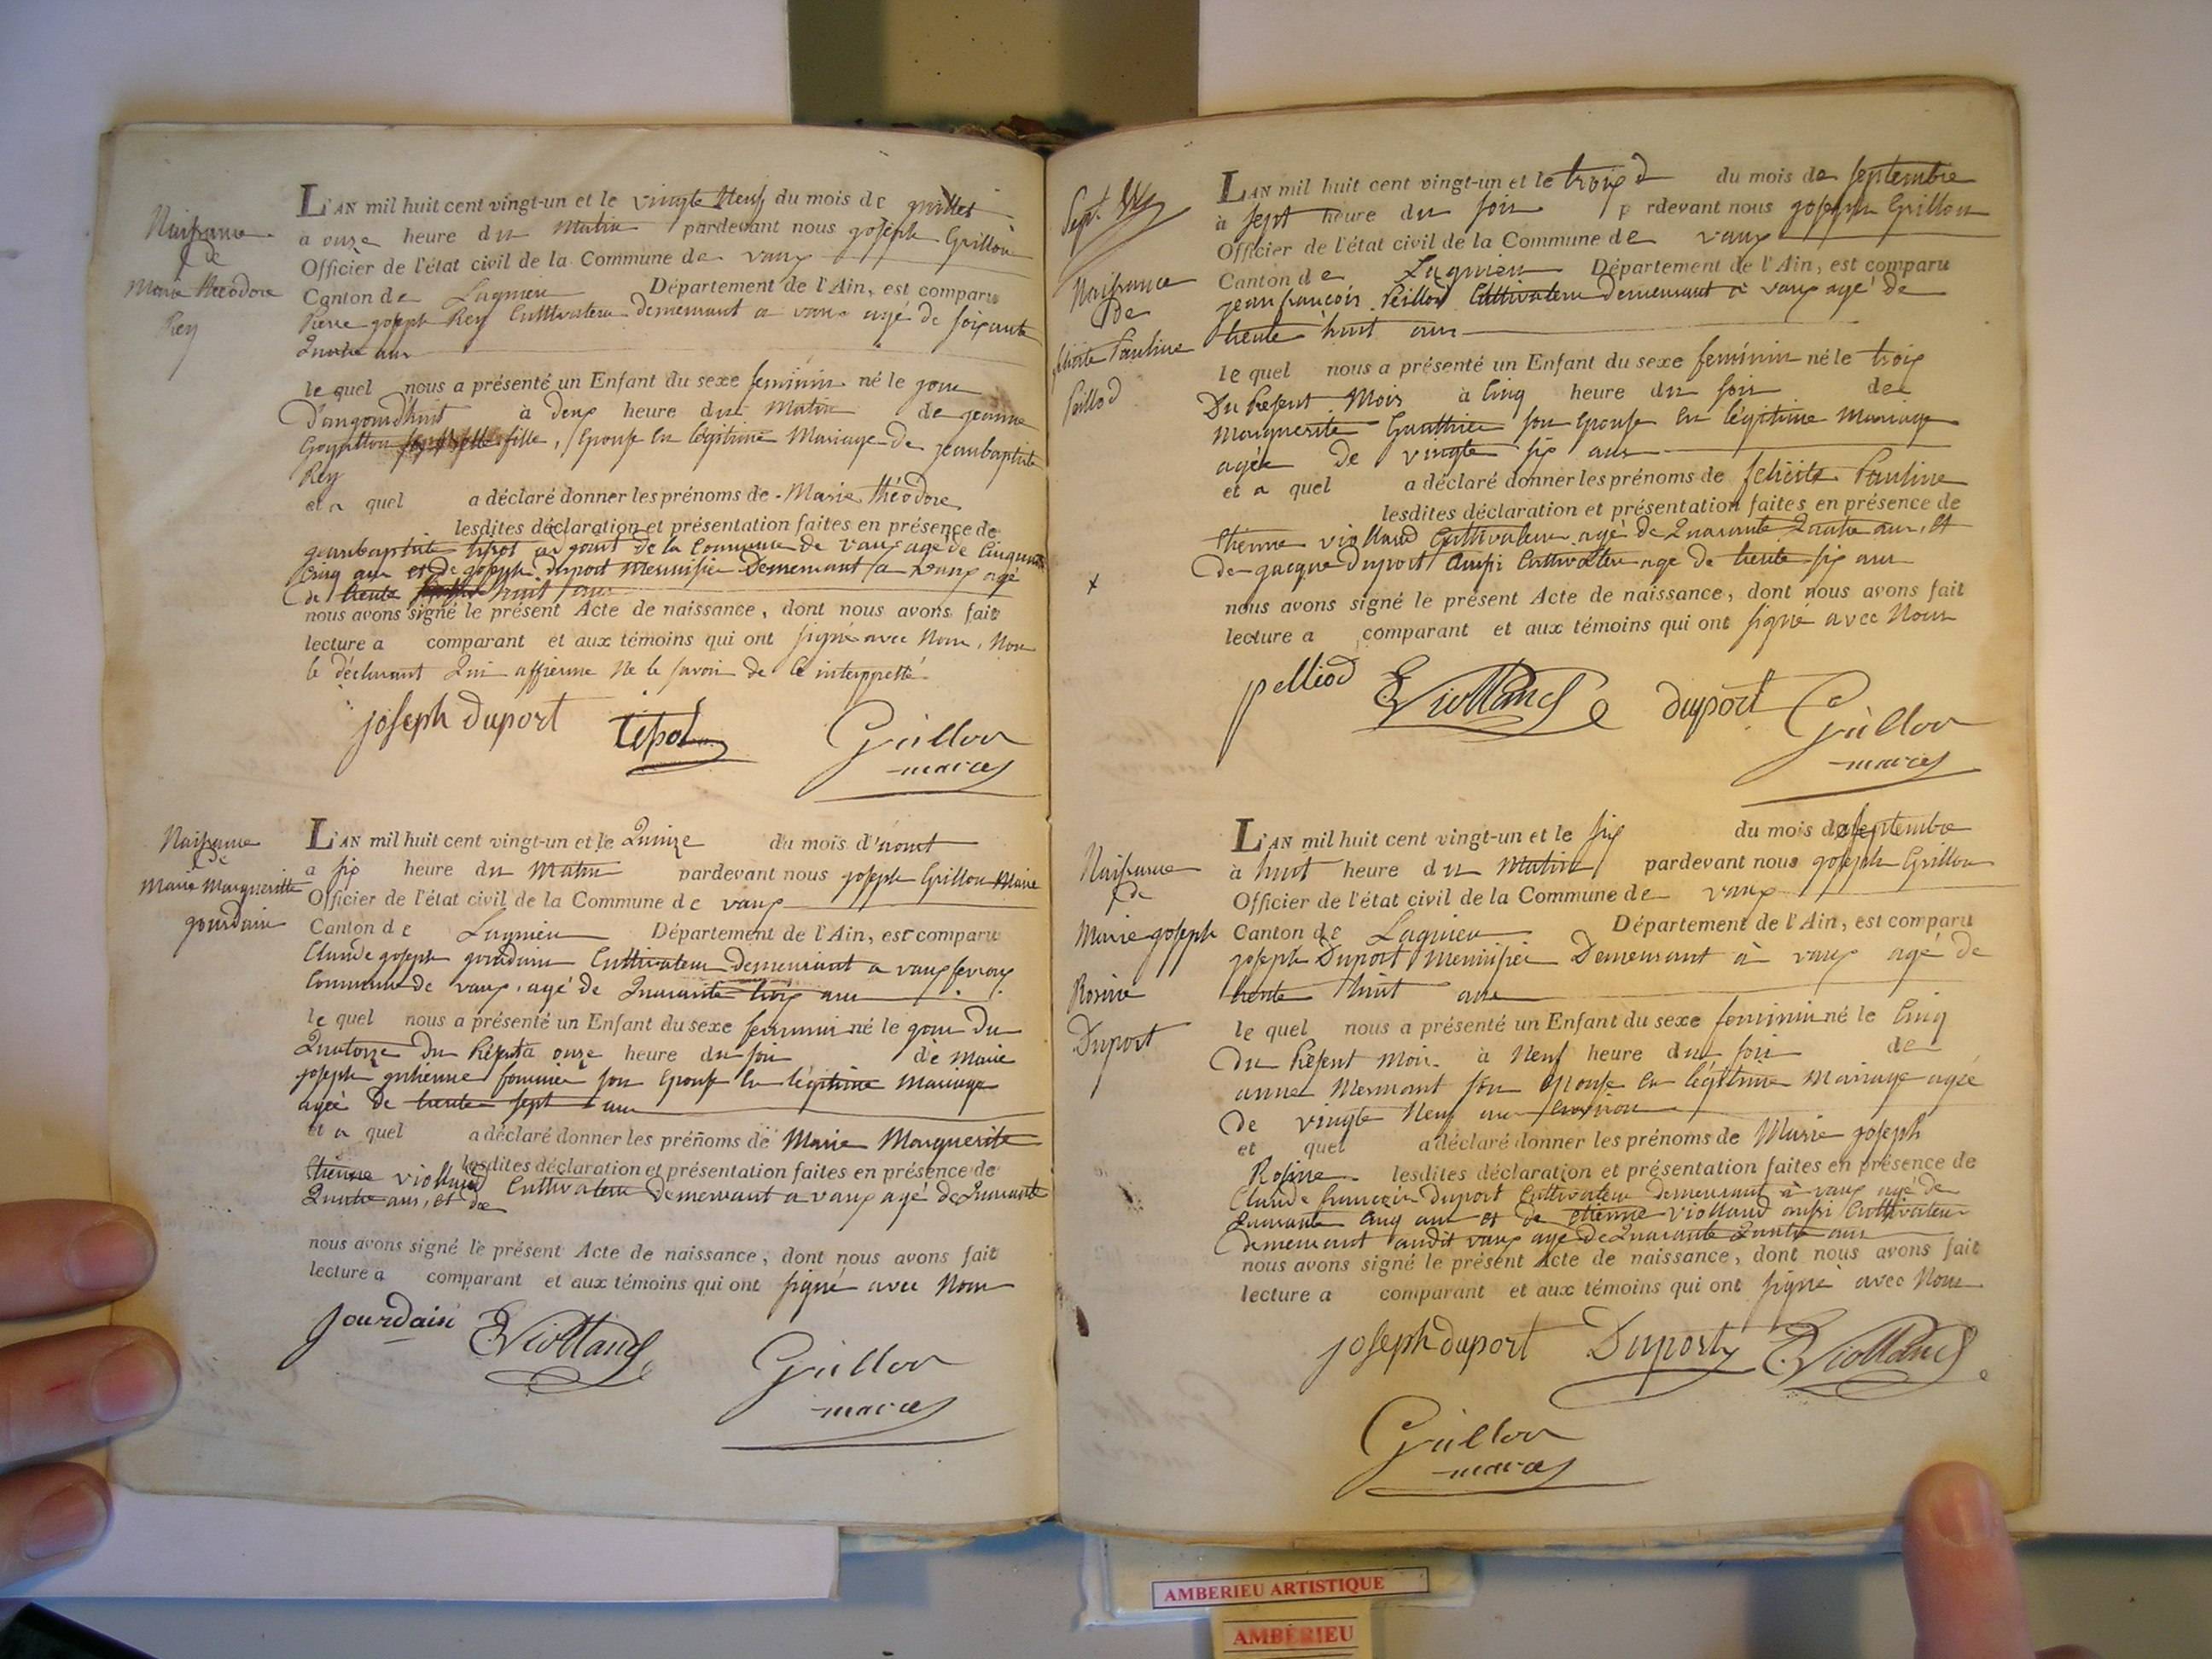 Naissance
de
Marie théodore
Rey
L'AN mil huit cent vingt-un et le vingte Neuf du mois de juillet
a onze heure du Matin pardevant nous joseph Grillon
Officier de l'état civil de la Commune de vaux
Canton de Lagnieu Département de l'Ain, est comparu
Pierre joseph Rey Cultivateur demeurant a vaux agé de soixante
Quatre ans
le quel nous a présenté un Enfant du sexe feminin né le jour
D'aujourd'huit à deux heure du Matin de jeanne
fille, Epouse en légitime Mariage de jeanbaptiste
Rey
et a quel a déclaré donner les prénoms de Marie théodore
lesdites déclaration et présentation faites en présence de
jeanbaptiste tipot adjoint de la Commune de Vaux agé de Cinquante
Cinq ans et de joseph duport Menuisier Demeurant a vaux agé
de trente huit ans
nous avons signé le présent Acte de naissance, dont nous avons fait
lecture a comparant et aux témoins qui ont signé avec Nous, Non
le déclarant Qui affirme Ne le savoir de Ce interppetté
joseph duport tipot Grillon
maire
Naissance
de
Marie Margueritte
jourdain
L'AN mil huit cent vingt-un et le Quinze du mois d'aout
a six heure du Matin pardevant nous joseph Grillon Maire
Officier de l'état civil de la Commune de vaux
Canton de Lagnieu Département de l'Ain, est comparu
Claude joseph jourdain Cultivateur demeurant a vaux fevroux
Commune de vaux, agé de Quarante trois ans
le quel nous a présenté un Enfant du sexe feminin né le jour Du
Quatorze Du Présent a onze heure du soir de Marie
joseph son Epouse en légitime Mariage
agée de trente sept ans
et a quel a déclaré donner les prénoms de Marie Marguerite
lesdites déclaration et présentation faites en présence de
Etienne viollaud Cultivateur demeurant a vaux agé de Quarante
Quatre ans, et de
nous avons signé le présent Acte de naissance, dont nous avons fait
lecture a comparant et aux témoins qui ont signé avec Nous
jourdain EViolland Grillon
maire
Sept.
Naissance
de
félicite Pauline
Peillod
L'AN mil huit cent vingt-un et le trois du mois de septembre
à sept heure du soir p rdevant nous joseph Grillon
Officier de l'état civil de la Commune de vaux
Canton de Lagnieu Département de l'Ain, est comparu
jean francois Peillod Cultivateur demeurant à vaux agé de
trente huit ans
le quel nous a présenté un Enfant du sexe feminin né le trois
Du Présent Mois à Cinq heure du soir de
Marguerite Gauthier son Epouse en légitime Mariage
agée De vingte six ans
et a quel a déclaré donner les prénoms de felicite Pauline
lesdites déclaration et présentation faites en présence de
Etienne viollaud Cultivateur agé de Quarante Quatre ans, Et
de jacque Duport Aussi Cultivateur agé de trente six ans
x
nous avons signé le présent Acte de naissance, dont nous avons fait
lecture a comparant et aux témoins qui ont signé avec Nous
pelliod EViolland duport Grillon
maire
Naissance
de
Marie joseph
Rosine
Duport
L'AN mil huit cent vingt-un et le six du mois de septembre
à huit heure du Matin pardevant nous joseph Grillon
Officier de l'état civil de la Commune de vaux
Canton de Lagnieu Département de l'Ain, est comparu
joseph Duport Menuisier Demeurant à vaux agé de
trente huit ans
le quel nous a présenté un Enfant du sexe feminin né le Cinq
Du Présent Mois à Neuf heure du soir de
anne Mermant son Epouse en légitime Mariage agée
de vingte Neuf ans Environ
et quel a déclaré donner les prénoms de Marie joseph
Rosine lesdites déclaration et présentation faites en présence de
Claude francois Duport Cultivateur demeurant à vaux agé de
Quarante Cinq ans et de etienne Viollaud aussi Cultivateur
demeurant audit vaux agé de Quarante Quatre ans
nous avons signé le présent Acte de naissance, dont nous avons fait
lecture a comparant et aux témoins qui ont signé avec Nous
joseph duport Duport EViolland
Grillon
maire
AMBERIEU ARTISTIQUE
AMBERIEU